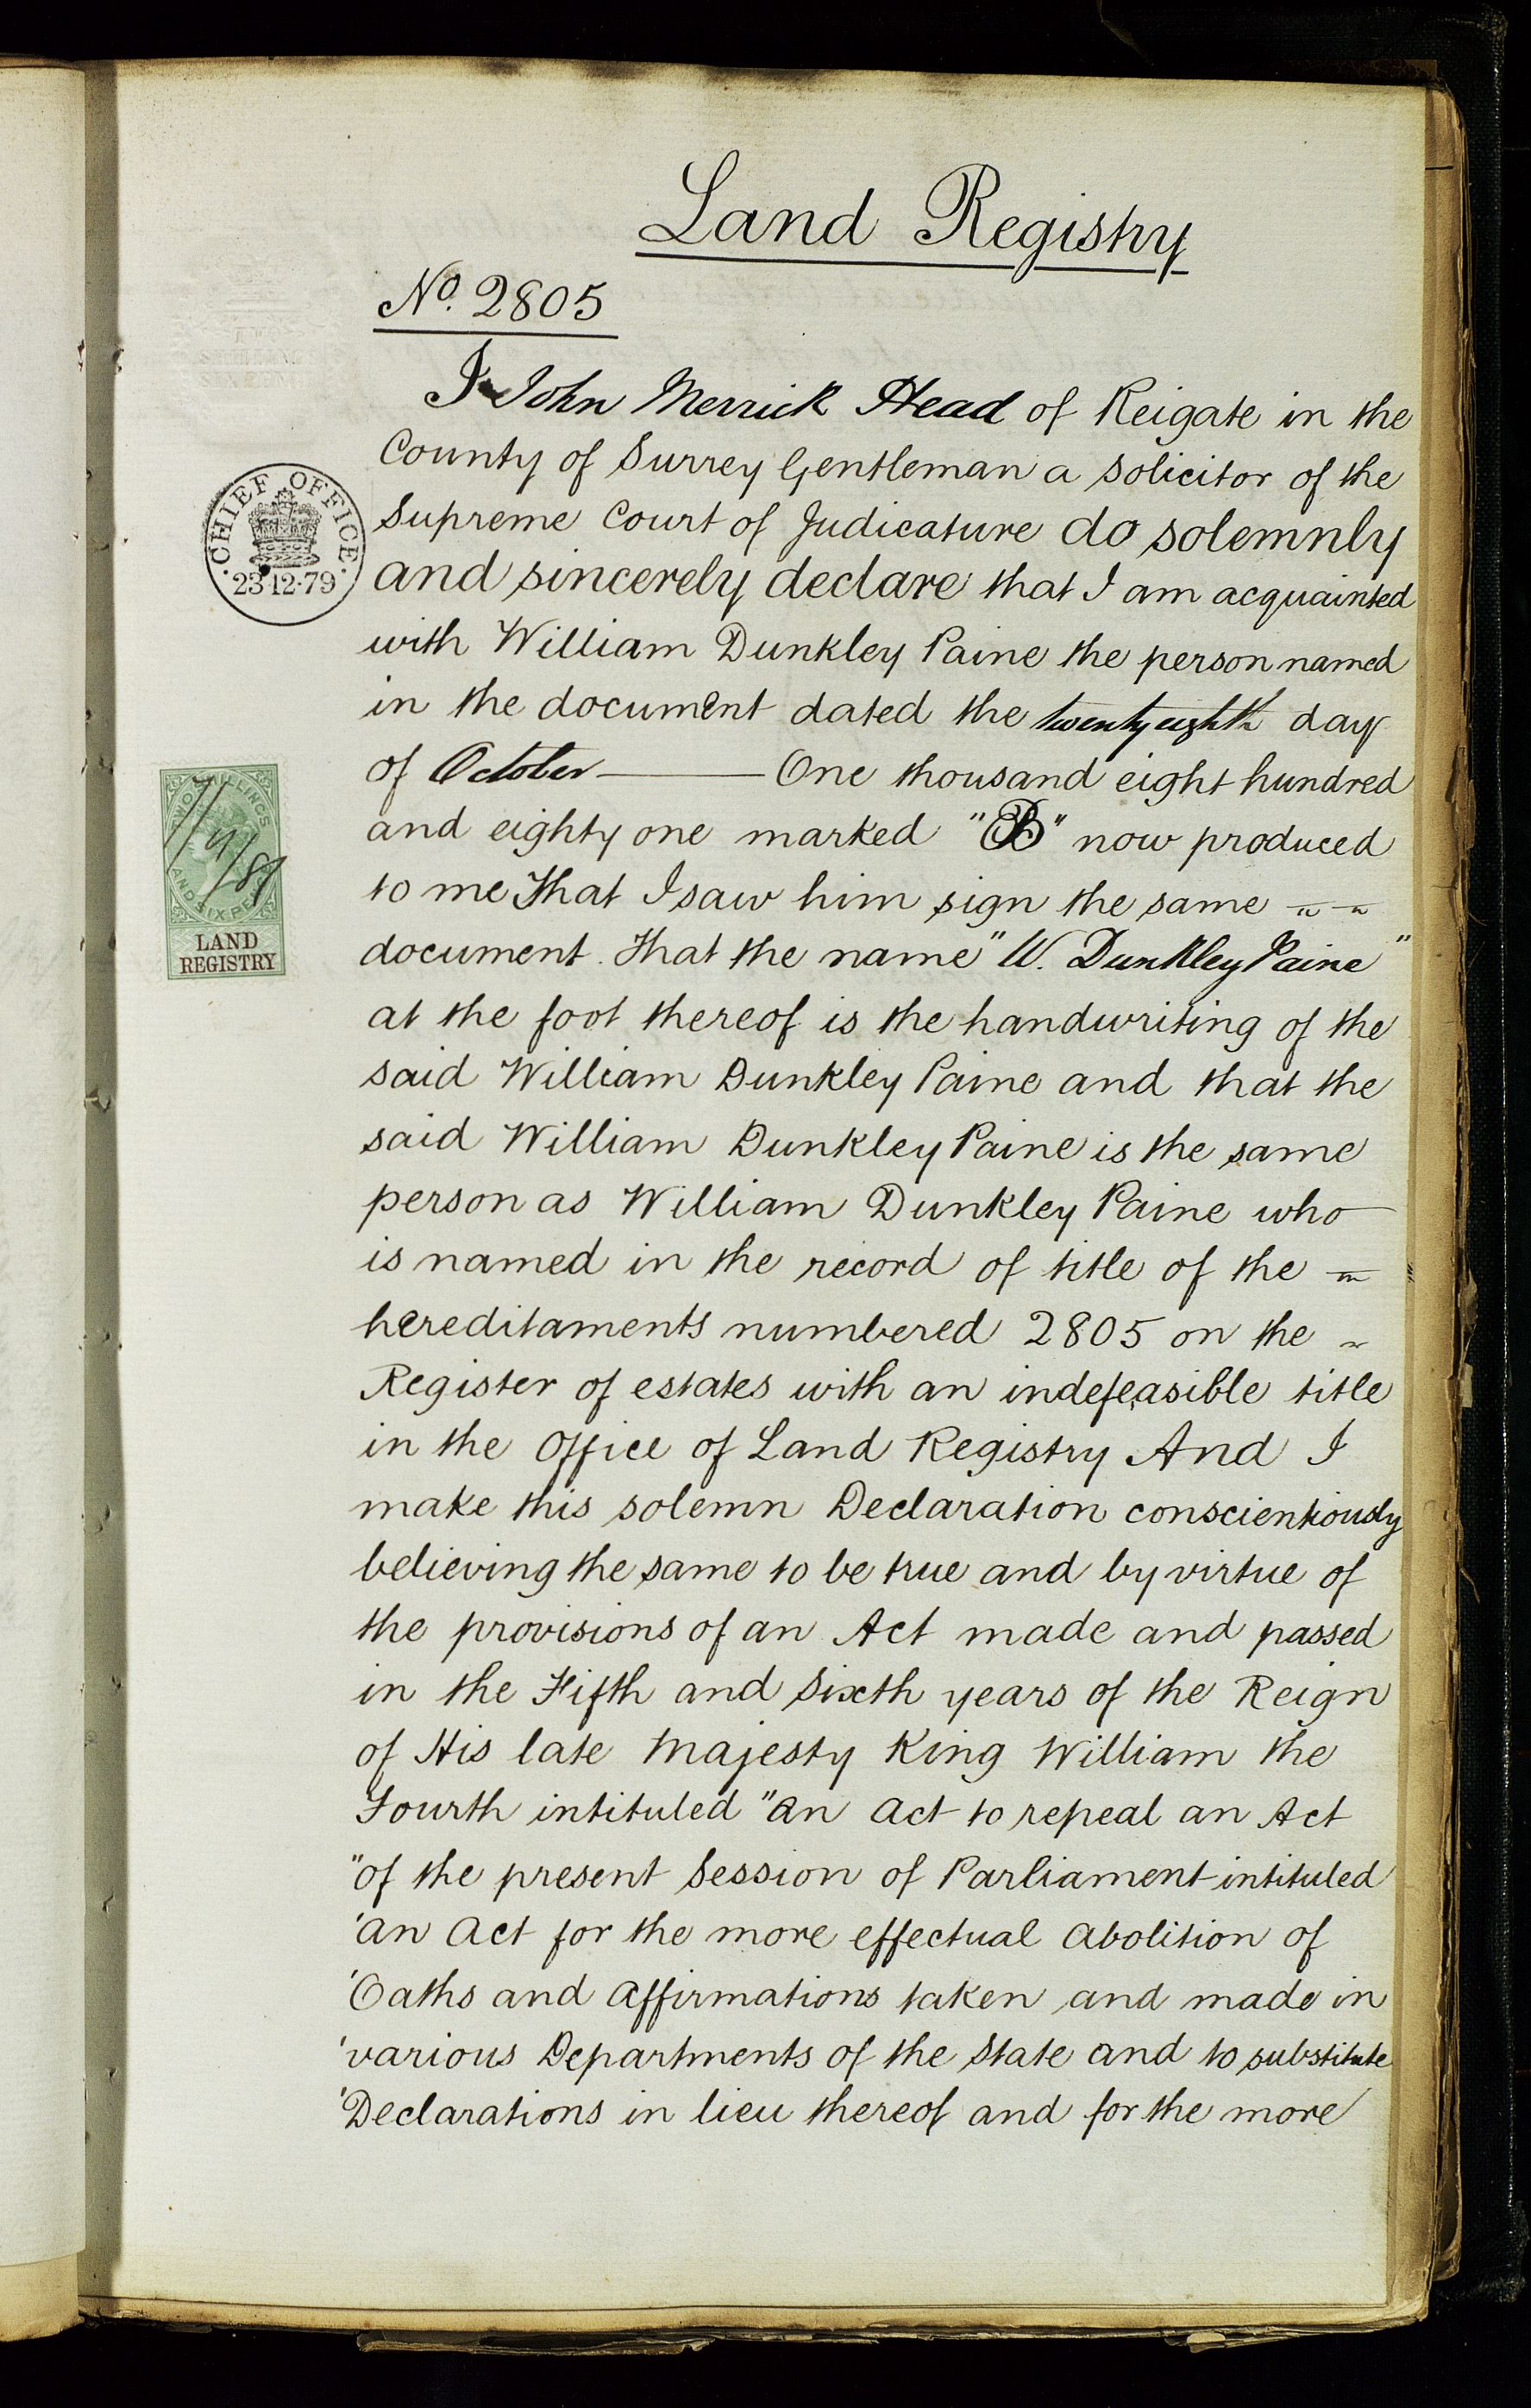 Land Registry
No. 2805
I John Merrick Head of Reigate in the
County of Surrey Gentleman a Solicitor of the
Supreme Court of Judicature do solemnly
and sincerely declare that I am acquainted
with William Dunkley Paine the person named
in the document dated the twenty eighth day
of October One thousand eight hundred
and eighty one marked "B" now produced
to me That I saw him sign the same
document. That the name "W. Dunkley Paine"
at the foot thereof is the handwriting of the
said William Dunkley Paine and that the
said William Dunkley Paine is the same
person as William Dunkley Paine who
is named in the record of title of the
hereditaments numbered 2805 on the
Register of estates with an indefeasible title
in the Office of Land Registry And I
make this solemn Declaration conscientiously
believing the same to be true and by virtue of
the provisions of an Act made and passed
in the Fifth and Sixth years of the Reign
of His late Majesty King William the
Fourth intituled "An Act to repeal an Act
"of the present Session of Parliament intituled
'An Act for the more effectual Abolition of
'Oaths and Affirmations taken and made in
'various Departments of the State and to substitute
'Declarations in lieu thereof and for the more
CHIEF OFFICE
23·12·79
TWO SHILLINGS
AND SIXPENCE
LAND
REGISTRY